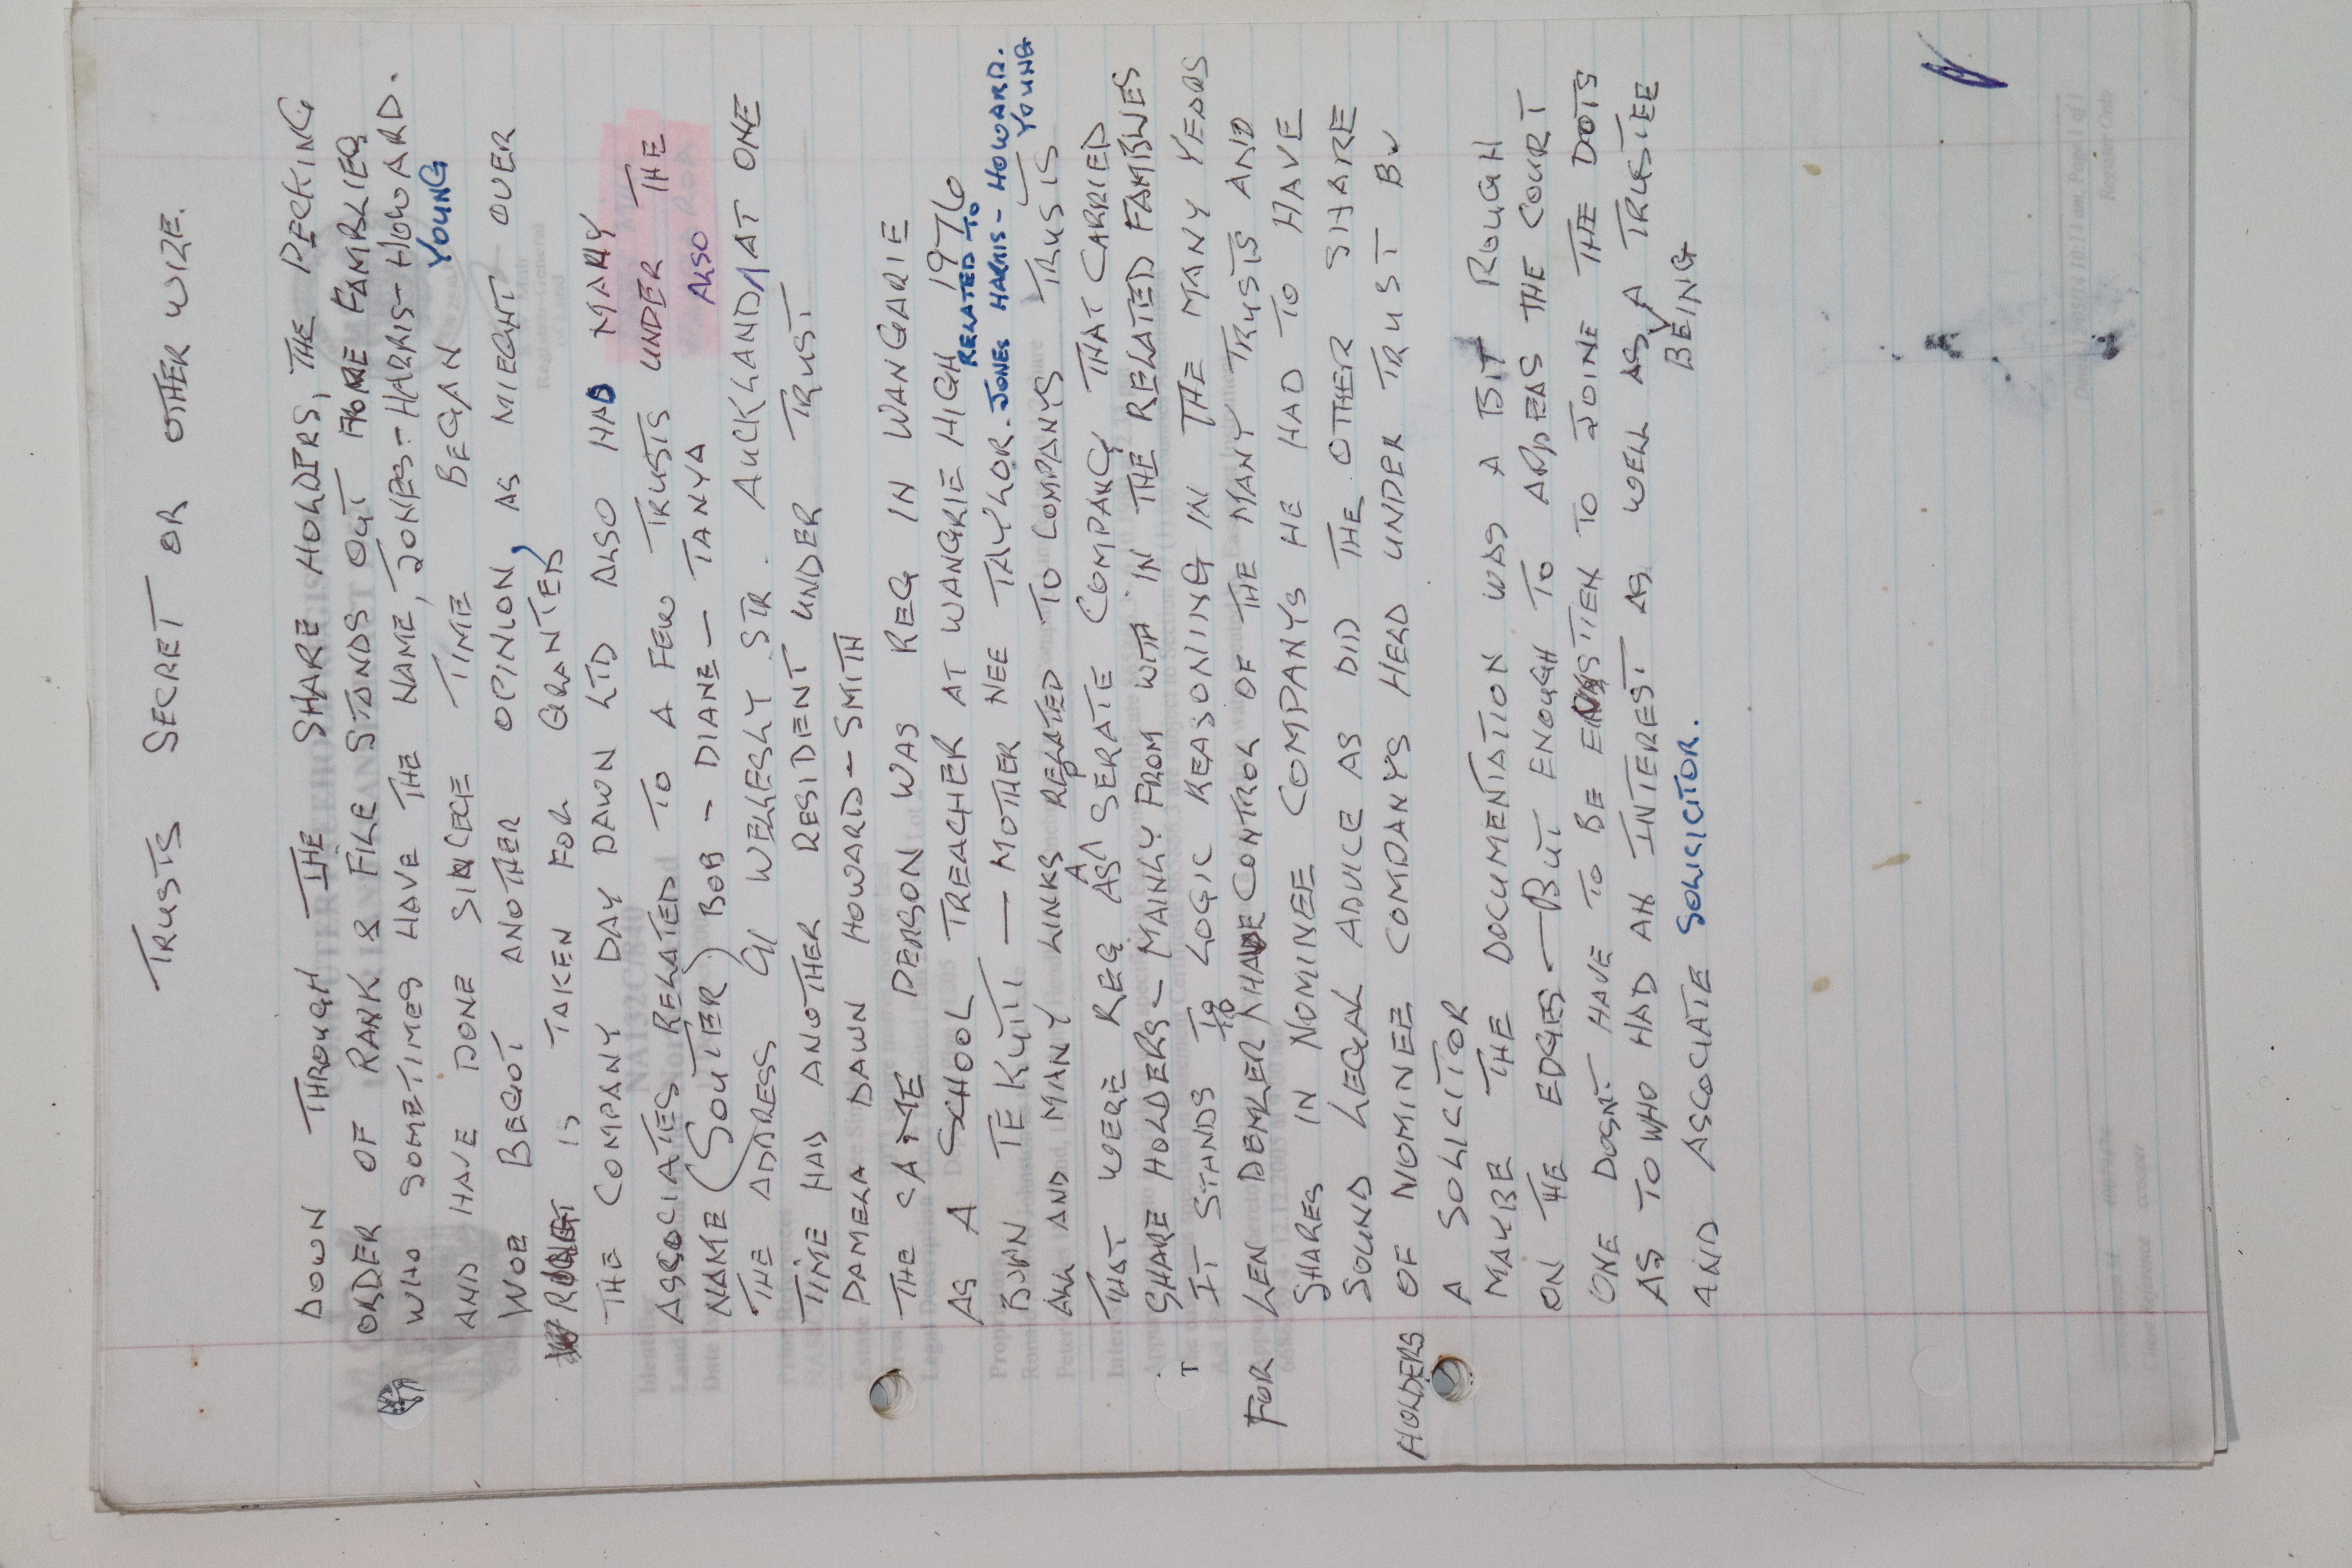 TRUSTS SECRET OR OTHER WIZE.
DOWN THROUGH THE SHARE HOLDERS, THE PECKING
ORDER OF RANK & FILE STANDS OUT MORE FAMBLIES
WHO SOMETIMES HAVE THE NAME, JONES-HARRIS-HOWARD.
YOUNG
AND HAVE DONE SINCE TIME BEGAN
WOE BEGOT ANOTHER OPINION, AS MIEGHT OVER
IS TAKEN FOR GRANTED
THE COMPANY DAY DAWN LTD ALSO HAD MANY
ASSOCIATES RELATED TO A FEW TRUSTS UNDER THE
NAME (SOUTER) BOB - DIANE - TANYA ALSO
THE ADDRESS 91 WELLESLY STR. AUCKLAND, AT ONE
TIME HAD ANOTHER RESIDENT UNDER TRUST
PAMELA DAWN HOWARD-SMITH
THE SAME PERSON WAS REG IN WANGARIE
AS A SCHOOL TREACHER AT WANGRIE HIGH 1976
RELATED TO
BORN TE KUITI — MOTHER NEE TAYLOR. JONES HARRIS - HOWARD.
YOUNG
ALL AND MANY LINKS RELATED TO COMPANYS TRUSTS
THAT WERE REG AS A SERATE COMPANY THAT CARRIED
SHARE HOLDERS - MAINLY FROM WITH IN THE RELATED FAMBLIES
IT STANDS TO LOGIC REASONING IN THE MANY YEARS
FOR LEN DEMLER HAVE CONTROL OF THE MANY TRUSTS AND
SHARES IN NOMINEE COMPANYS HE HAD TO HAVE
SOUND LEGAL ADVICE AS DID THE OTHER SHARE
HOLDERS OF NOMINEE COMPANYS HELD UNDER TRUST BY
A SOLICITOR
MAYBE THE DOCUMENTATION WAS A BIT ROUGH
ON THE EDGES — BUT ENOUGH TO APPEAS THE COURT
ONE DOSNT HAVE TO BE EINSTIEN TO JOINE THE DOTS
AS TO WHO HAD AN INTEREST AS WELL AS BEING A TRUSTEE
AND ASSOCIATE SOLISCITOR.